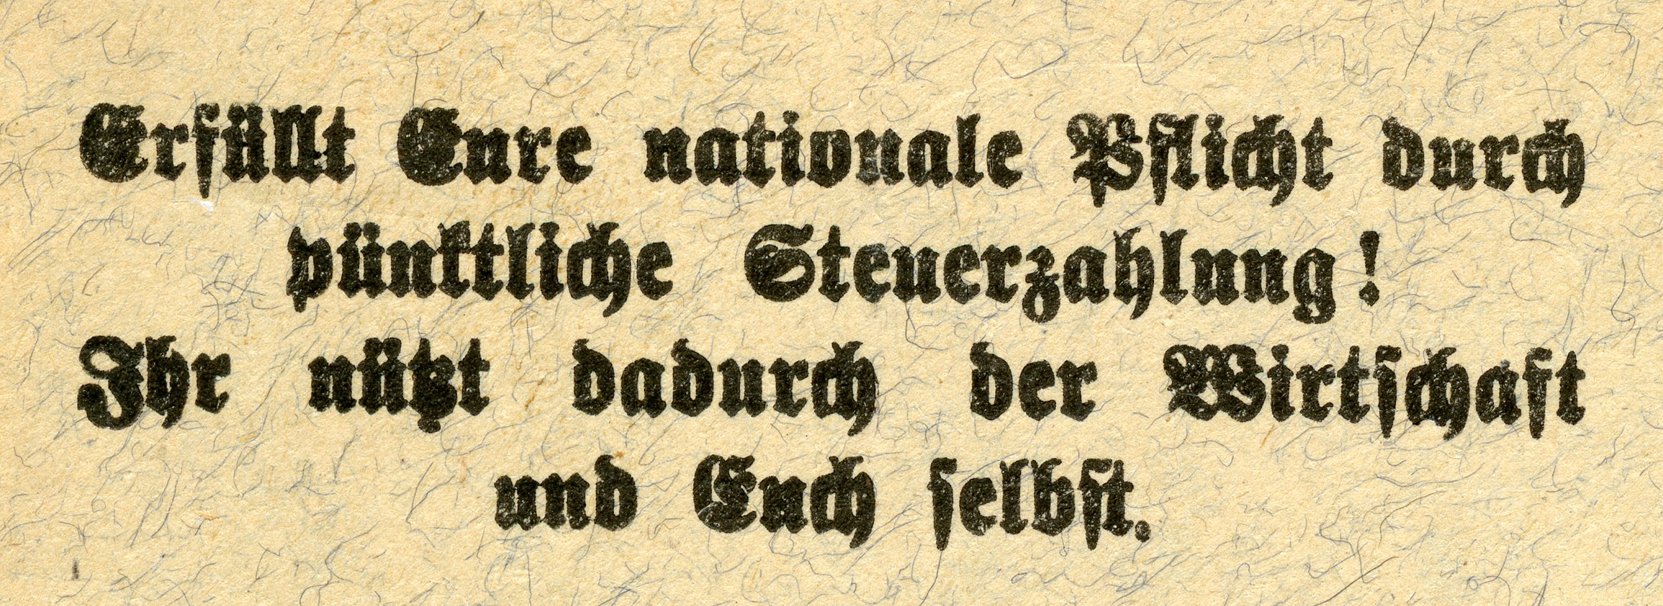 Erfüllt Eure nationale Pflicht durch
pünktliche Steuerzahlung!
Ihr nützt dadurch der Wirtschaft
und Euch selbst.